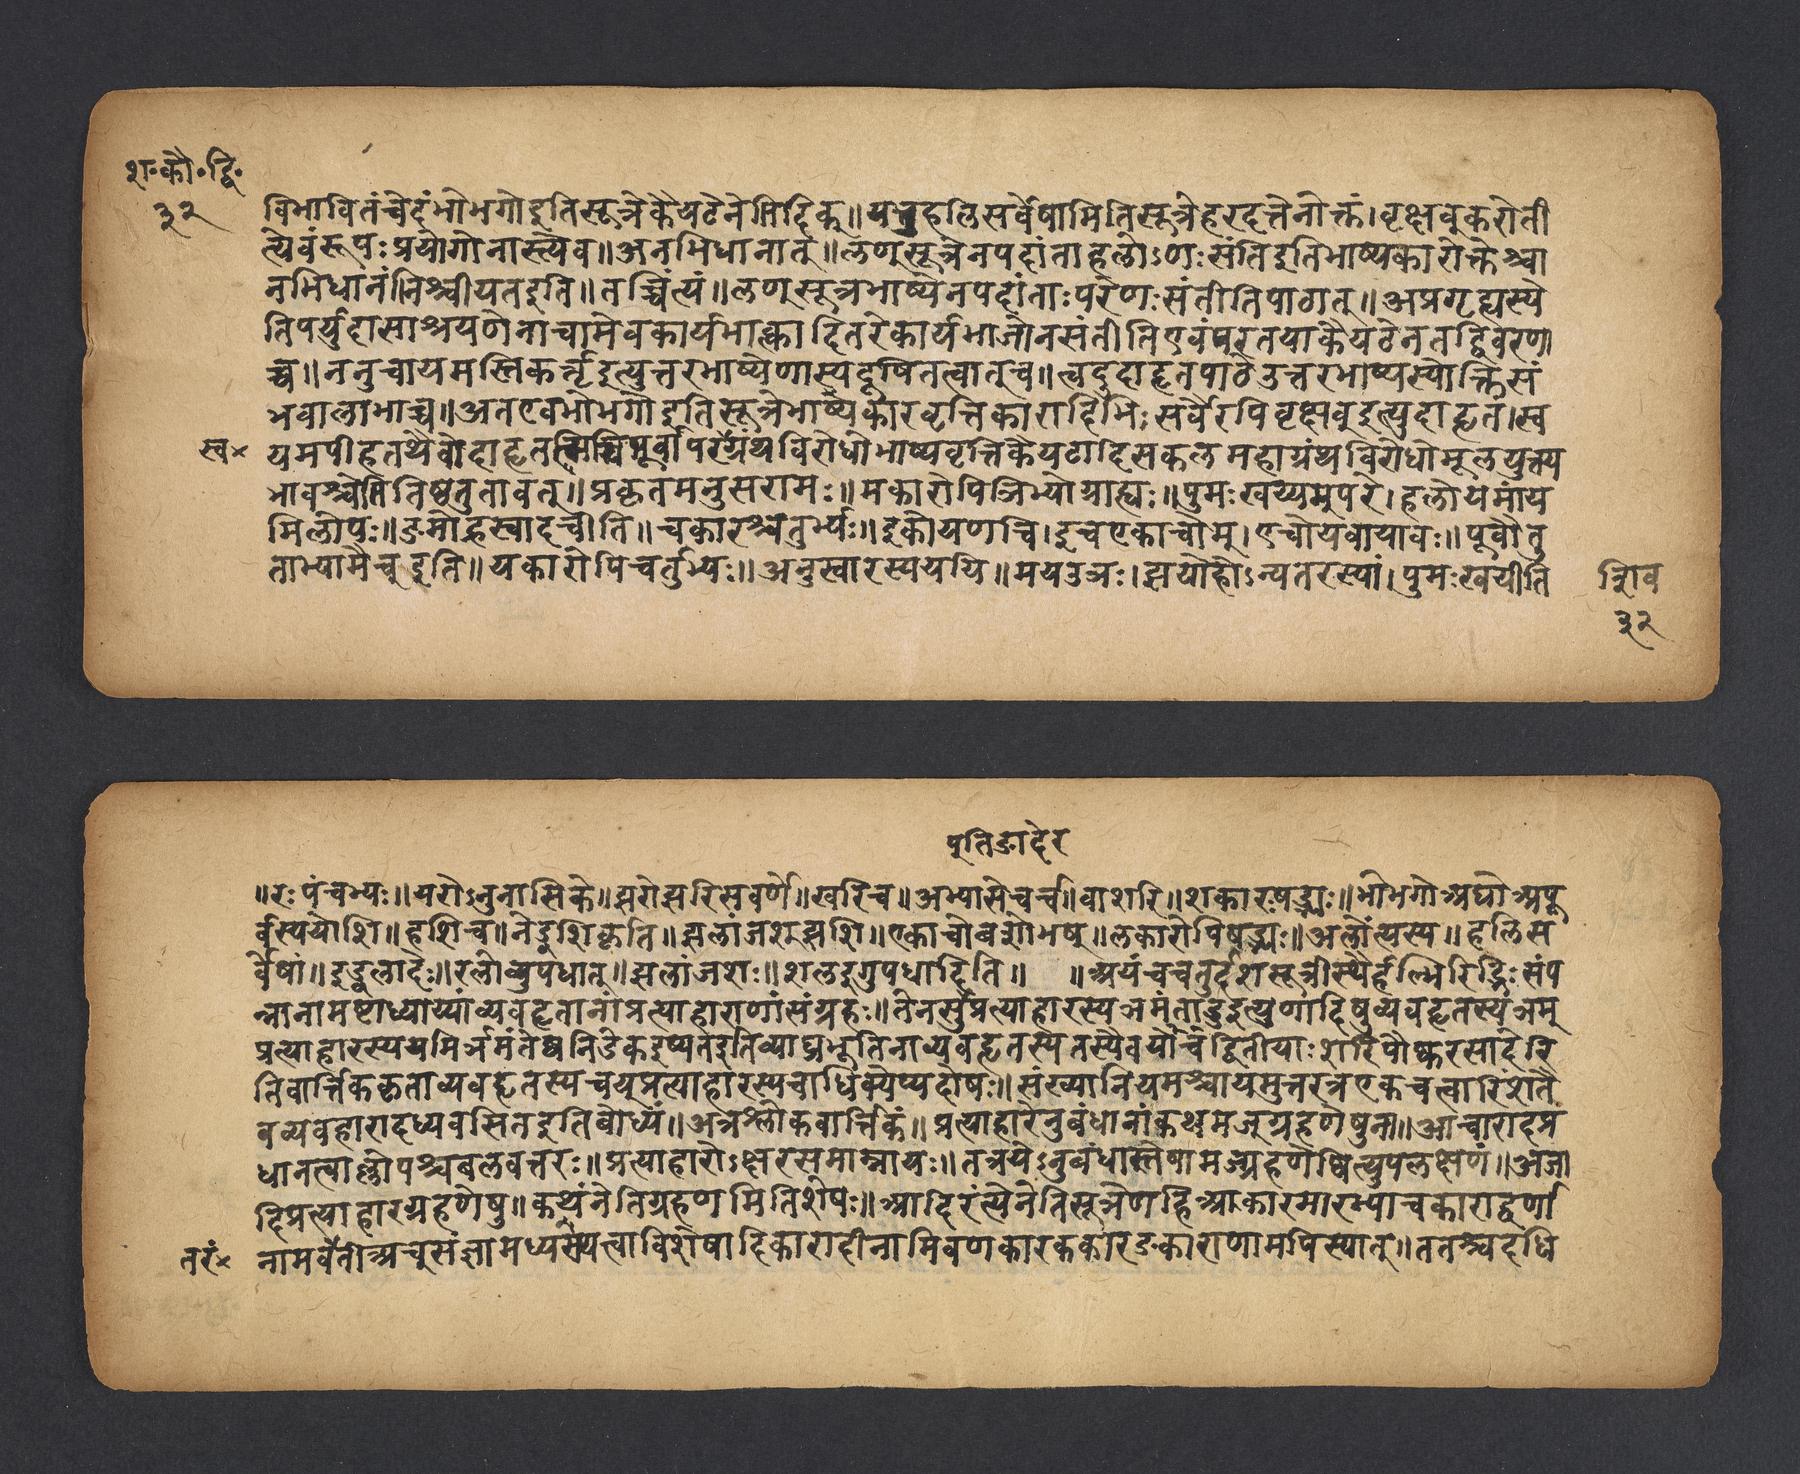 श॰कौ॰द्वि॰
३२
विभावितंचेदंभोभगोइतिसूत्रेकैयटेनेतिदिक्॥यत्तुहलिसर्वेषामितिसूत्रेहरदत्तेनोक्तं।वृक्षव्करोती
त्येवंरूपःप्रयोगोनास्त्येव॥अनभिधानात्॥लण्सूत्रेनपदांताहलोऽणःसंतिइतिभाष्यकारोक्तेश्चा
नभिधानंनिश्चीयतइति॥तच्चिंत्यं॥लण्सूत्रभाष्येनपदांताःपरेणःसंतीतिपाठात्॥अप्रगृह्यस्ये
तिपर्युदासाश्रयणेनाचामेवकार्यभाक्त्कादितरेकार्यभाजोनसंतीतिएवंपरतयाकैयटेनतद्विवरणा
च्च॥ननुचायमस्तिकर्तृइत्युत्तरभाष्येणास्यदूषितत्वात्च॥त्वदुदाहृतपाठेउत्तरभाष्यस्योक्तिसं
भवालाभाच्च॥अतएवभोभगोइतिसूत्रेभाष्यकारवृत्तिकारादिभिःसर्वैरपिवृक्षव्इत्युदाहृतं।स्व
स्व×
यमपीहतथैवोदाहृतमितिपूर्वापरग्रंथविरोधोभाष्यवृत्तिकैयटादिसकलमहाग्रंथविरोधोमूलयुक्त्य
भावश्चेतितिष्ठतुतावत्॥प्रकृतमनुसरामः॥मकारोपित्रिभ्योग्राह्यः॥पुमःखय्यम्परे।हलोयमांय
मिलोपः॥ङमोह्रस्वादचीति॥चकारश्चतुर्भ्यः॥इकोयणचि।इचएकाचोम्।एचोयवायावः॥पूर्वौतु
ताभ्यामैच्इति॥यकारोपिचर्तुभ्यः॥अनुस्वारस्यययि॥मयउञः।झयोहोऽन्यतरस्यां।पुमःखयीति
शिव
३२
पूतिङादेर
॥रःपंचभ्यः॥यरोऽनुनासिके॥झरोझरिसवर्णे॥खरिच॥अभ्यासेचर्च॥वाशरि॥शकारःषड्भ्यः॥भोभगोअघोअपू
र्वस्ययोशि॥हशिच॥नेड्वशिकृति॥झलांजश्झशि॥एकाचोबशोभष्॥लकारोपिषड्भ्यः॥अलोंत्यस्य॥हलिस
र्वेषां॥इड्वलादेः॥रलोव्युपधात्॥झलांजशः॥शलइगुपधादिति॥ ॥अयंचचतुर्दशसूत्रीस्थैर्हल्भिरिद्भिःसंप
न्नानामष्टाध्याय्यांव्यवहृतानांप्रत्याहाराणांसंग्रहः॥तेनसुप्रत्याहारस्यञमंताड्डइत्युणादिषुव्यवहृतस्यञम्
प्रत्याहारस्ययमिर्ञमंतेष्वनिडेकइष्यतइतिव्याघ्रभूतिनाव्यवहृतस्यतस्यैवचयोद्वितीयाःशरिपौष्करसादेरि
तिवार्त्तिककृताव्यवहृतस्यचय्प्रत्याहारस्यचाधिक्येप्यदोषः॥संख्यानियमश्चायमुत्तरत्रएकचत्वारिंशतै
वव्यवहारादध्यवसितइतिबोध्यं॥अत्रश्लोकवार्त्तिकं॥प्रत्याहारेनुबंधानांकथमज्ग्रहणेषुन॥आचारादप्र
धानत्वाल्लोपश्चबलवत्तरः॥प्रत्याहारोऽक्षरसमाम्नायः॥तत्रयेऽनुबंधास्तेषामज्ग्रहणेष्वित्युपलक्षणं॥अजा
दिप्रत्याहारग्रहणेषु॥कथंनेतिग्रहणमितिशेषः॥आदिरंत्येनेतिसूत्रेणहिआकारमारभ्याचकाराद्वर्णा
तरं×
नामवेतोअच्संज्ञामध्यस्थत्वाविशेषादिकारादीनामिवणकारककारङकाराणामपिस्यात्॥ततश्चदधि